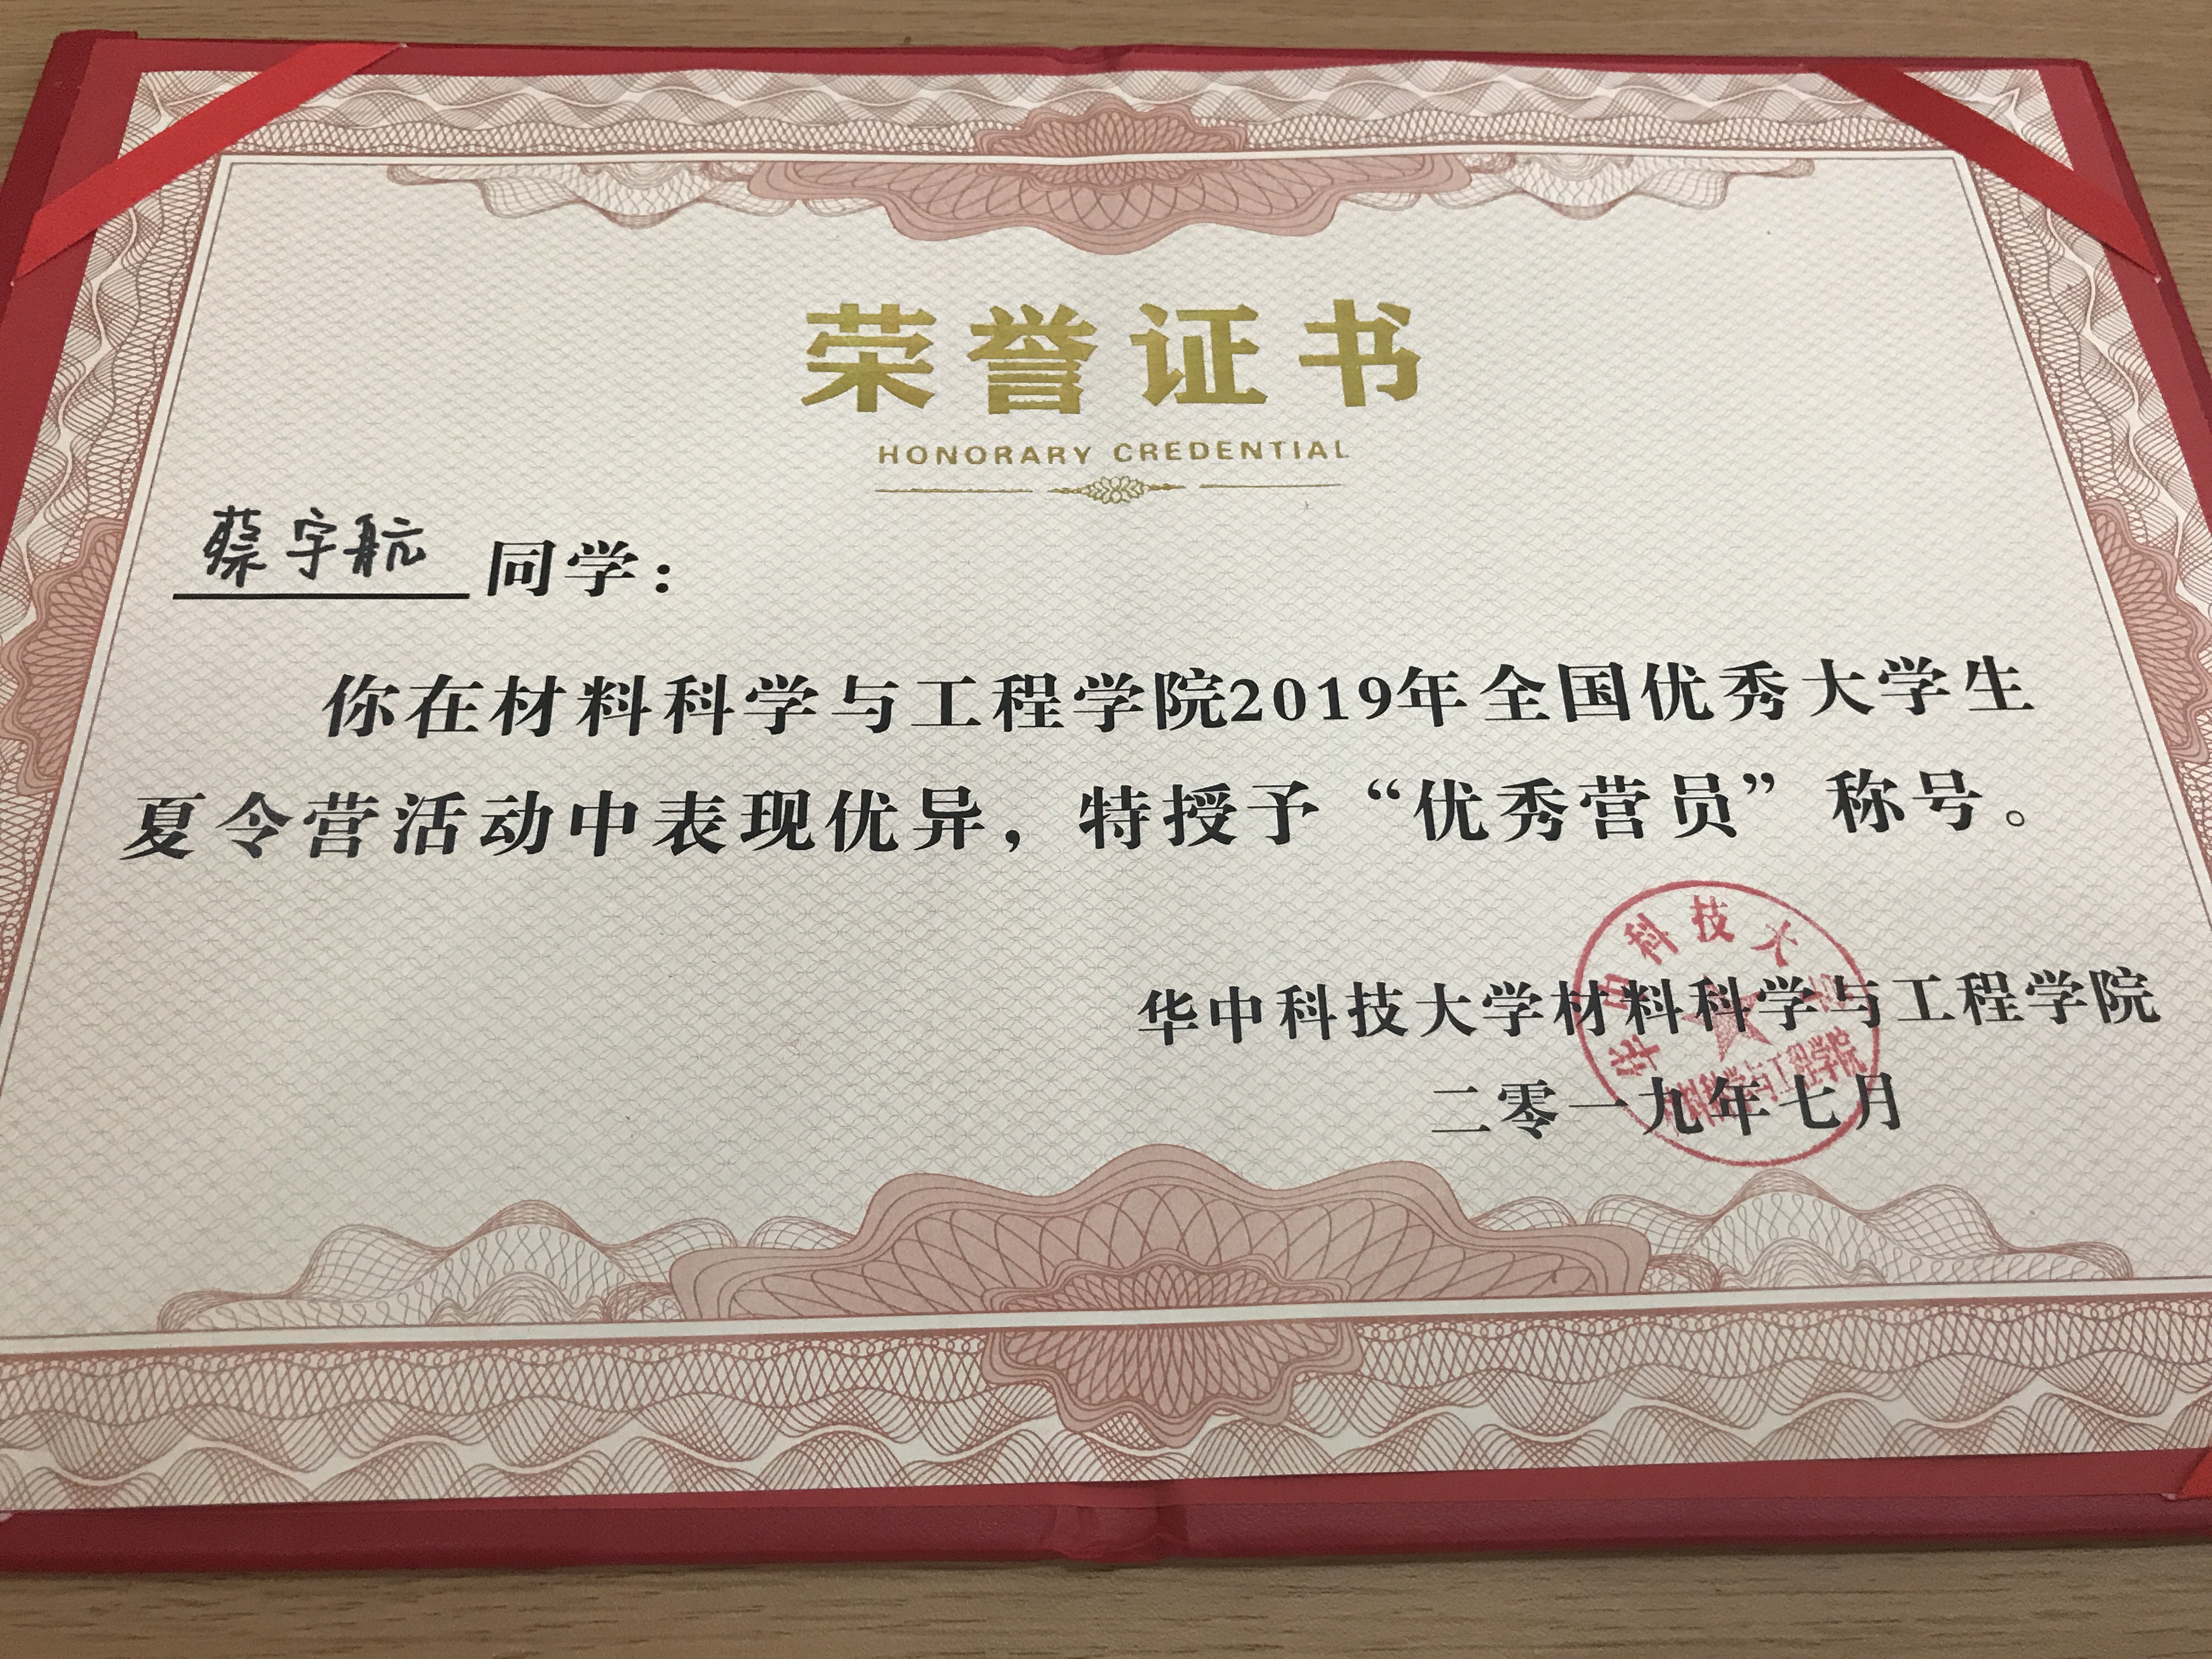 荣誉证书
HONORARY CREDENTIAL
蔡宇航 同学：
你在材料科学与工程学院2019年全国优秀大学生
夏令营活动中表现优异，特授予“优秀营员”称号。
华中科技大学材料科学与工程学院
二零一九年七月
华中科技大学
材料科学与工程学院